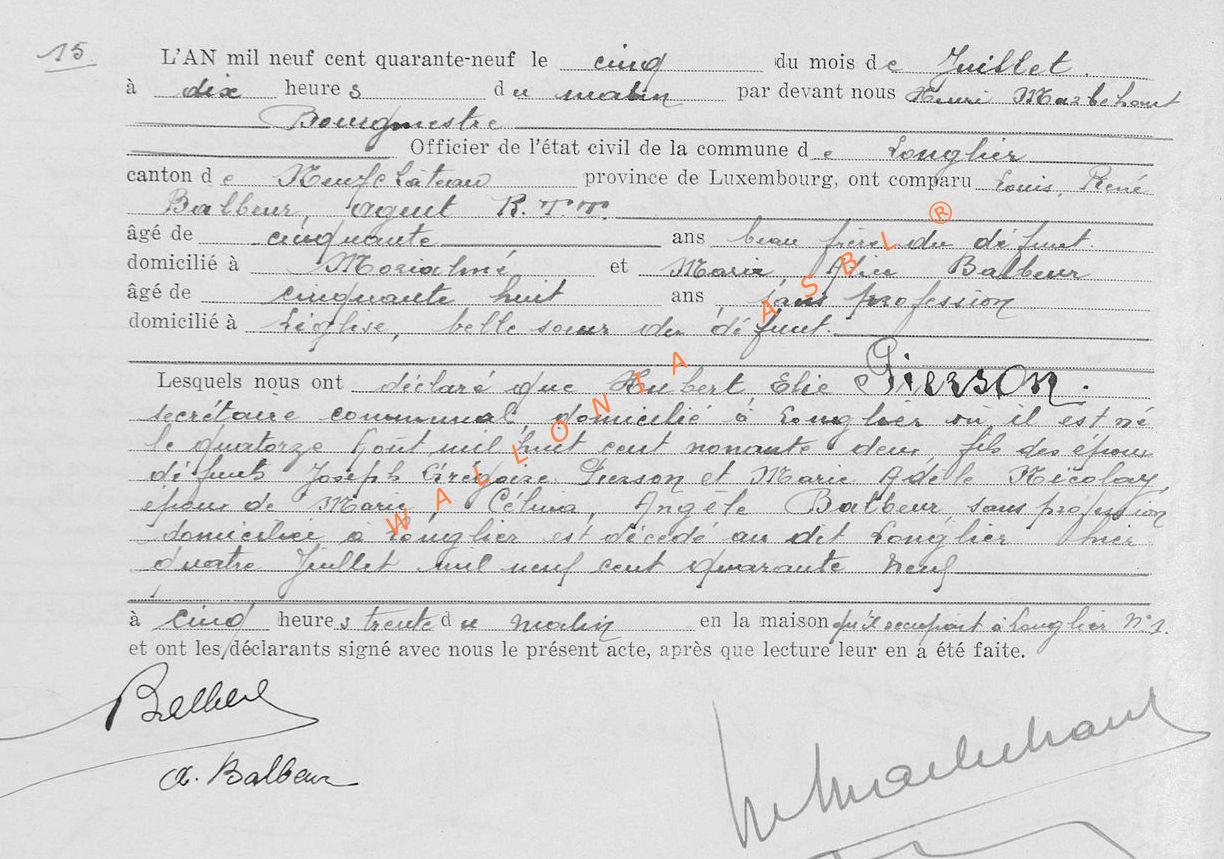 15.
L'AN mil neuf cent quarante-neuf le cinq du mois de Juillet.
à dix heures du matin par devant nous Henri
Bourgmestre
Officier de l'état civil de la commune de Longlier
canton de Neufchâteau province de Luxembourg, ont comparu Louis, René
Balbeur, agent R.T.T.
âgé de cinquante ans beau frère du défunt.
domicilié à Morialmé et Marie, Balbeur
âgé de cinquante huit ans sans profession
domicilié à Léglise, belle soeur du défunt.
Lesquels nous ont déclaré que Hubert, Elie Pierson.
secrétaire communal, domicilié à Longlier où il est né
le quatorze Août mil huit cent nonante deux, fils des époux
défunts Joseph Grégoire Pierson et Marie Adèle Nicolay,
époux de Marie, Célina, Angèle Balbeur sans profession
domiciliée à Longlier est décédé au dit Longlier hier
quatre Juillet mil neuf cent quarante neuf
à cinq heures trente du matin en la maison qu'il occupait à Longlier N°1.
et ont les déclarants signé avec nous le présent acte, après que lecture leur en a été faite.
Balbeur
A. Balbeur
WALLONIA ASBL ®